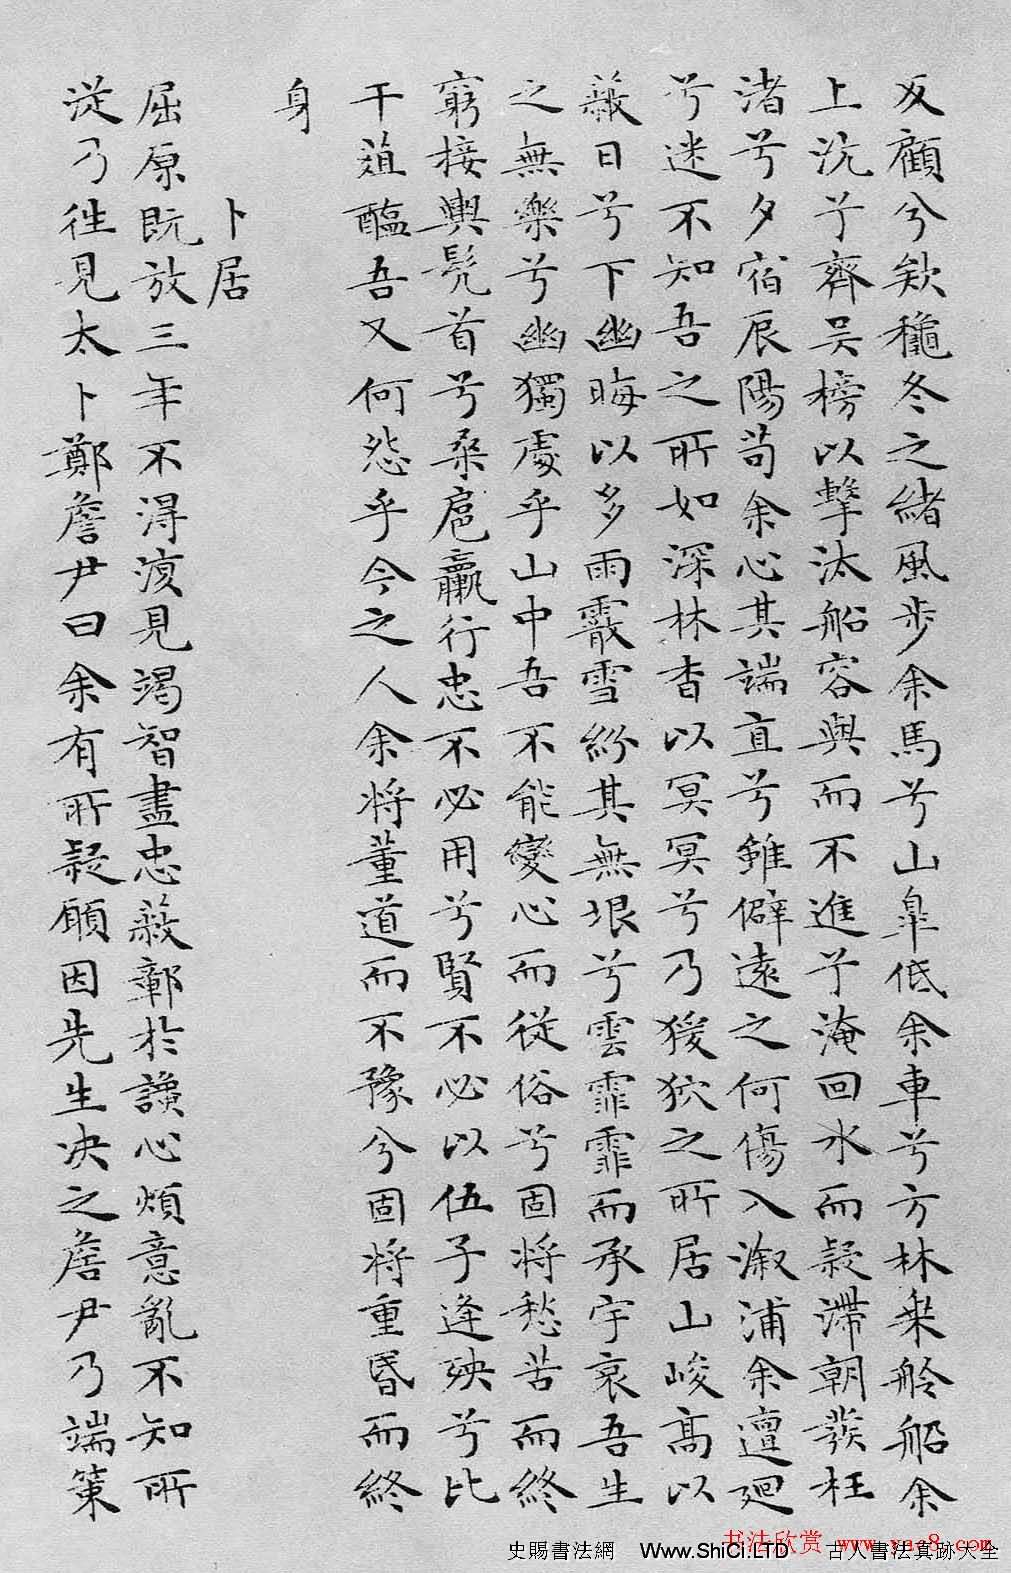 反顧兮欸穐冬之緒風步余馬兮山皐低余車兮方林椉舲船余
上沅兮齊吴榜以擊汰船容與而不進兮淹回水而疑滯朝發枉
渚兮夕宿辰陽苟余心其端直兮雖僻遠之何傷入溆浦余邅迴
兮迷不知吾之所如深林杳以冥冥兮乃猨狖之所居山峻高以
蔽日兮下幽晦以多雨霰雪紛其無垠兮雲霏霏而承宇哀吾生
之無樂兮幽獨處乎山中吾不能變心而從俗兮固將愁苦而終
窮接輿髡首兮桑扈臝行忠不必用兮賢不必以伍子逢殃兮比
干菹醢吾又何怨乎今之人余將董道而不豫兮固將重昬而終
身
卜居
屈原既放三年不得復見竭智盡忠蔽鄣於讒心煩意亂不知所
從乃往見太卜鄭詹尹曰余有所疑願因先生决之詹尹乃端策
书法欣赏
史賜書法網 Www.ShiCi.LTD 古人書法真跡大全